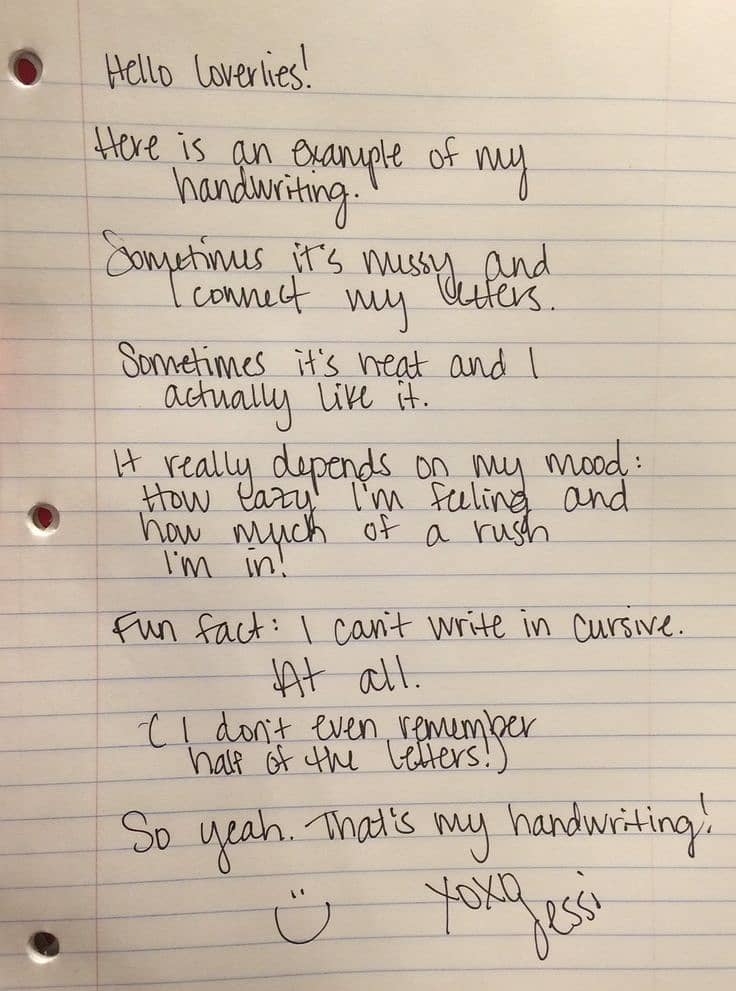 Hello Loverlies!
Here is an example of my
handwriting.
Sometimes it's messy and
I connect my letters.
Sometimes it's neat and I
actually like it.
It really depends on my mood:
How lazy I'm feeling and
how much of a rush
I'm in!
Fun fact: I can't write in cursive.
At all.
(I don't even remember
half of the letters!)
So yeah. That's my handwriting!
:) xoxo Jessi